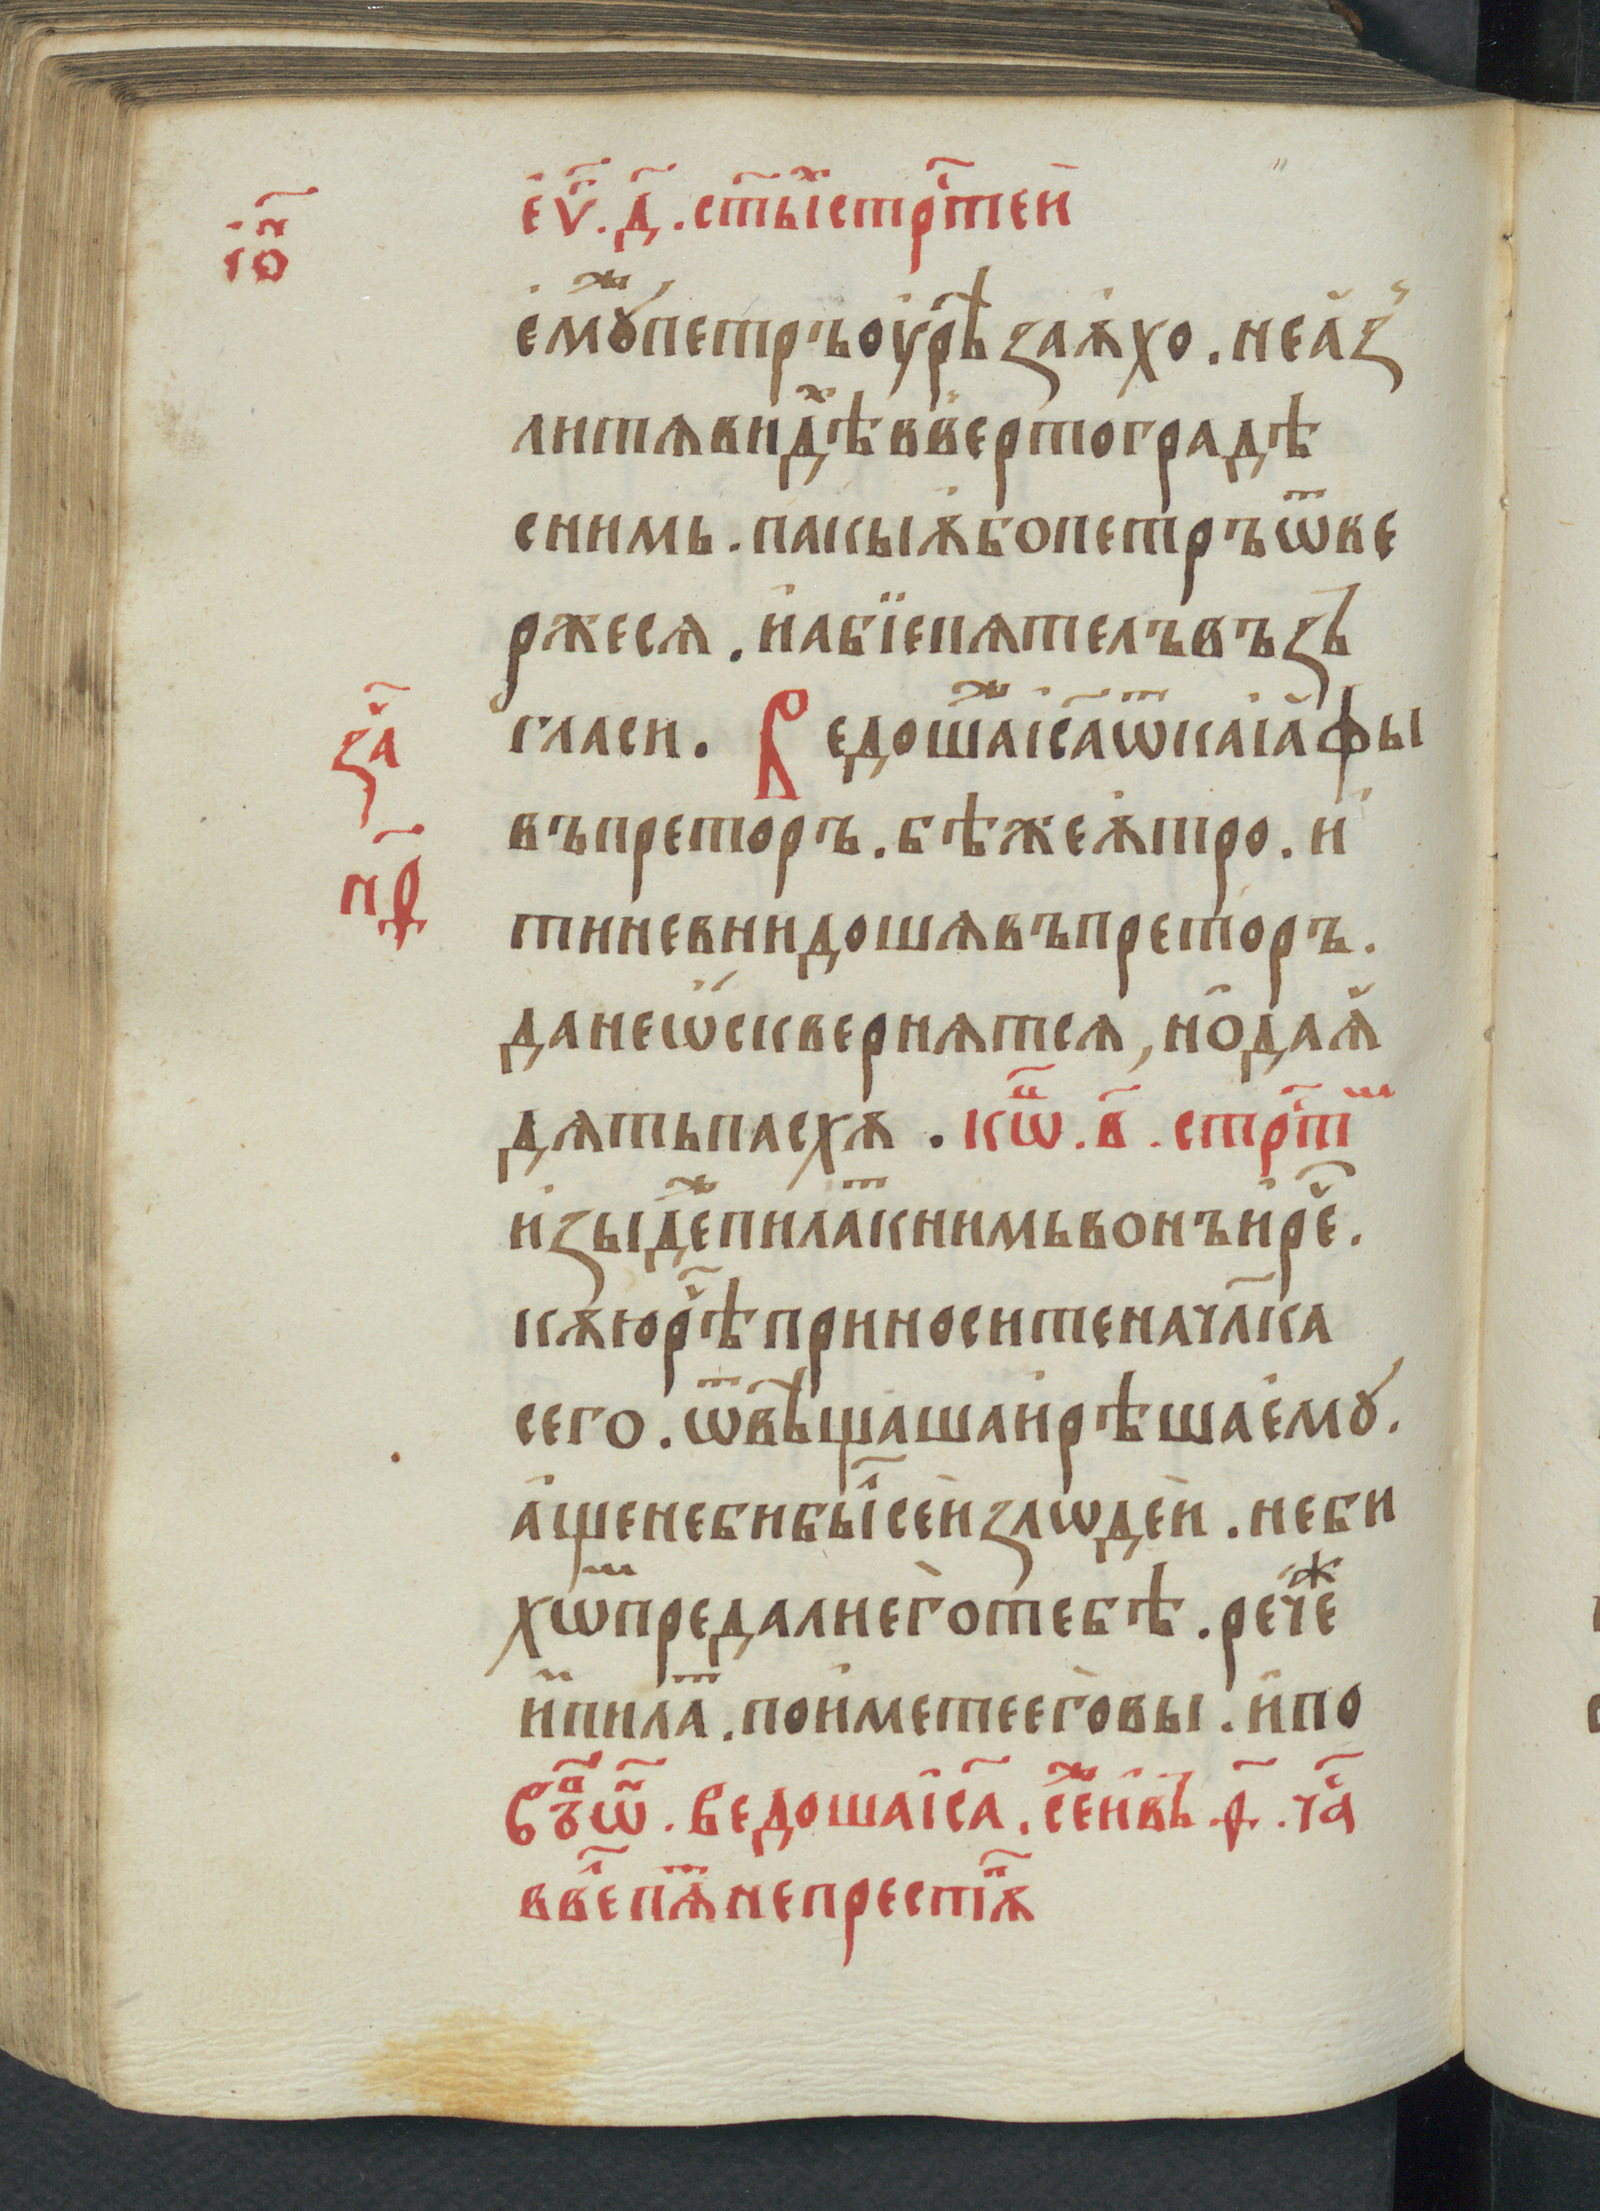 і҆оа҃н
е҆ѵ҃г. д҃. ст҃ыⷯ стрⷭ҇те́и
е҆мꙋⷤ петръ ᲂу҆рѣ́ за ѫ҆хо. не а҆́з
ли тѧ видⷯѣ в ве҆ртоградѣ
с нимь. пакы ѫ҆бо петръ ѿве
ржесѧ. и҆ а҆бїе пѧтелъ възъ
гласи. Ведошаⷤ і҆с҃а ѿ каіа҆фы
въ преторъ. бѣ же ѫ҆тро. и҆
за҃ч
н҃ѳ
ти не внидошѧ въ преторъ.
да не ѡ҆сквернѧтсѧ, но҆ да ꙗ҆
дѧть пасхѫ. кѡⷩ҇ц. в҃. стрⷭ҇тⷨ
и҆зыдеⷤ пилаⷮ к нимь вонъ и҆ рⷱ҇е.
кѫю рⷱ҇ѣ приносите на чл҃ка
сего. ѿвѣщаша и҆ рѣша е҆мꙋ.
а҆ще не би быⷭ҇ се́и злѡде́и. не би
хѡⷨ предали е҆го̀ тебѣ. речеⷤ
и҆ⷨ пилаⷮ. пои҆мете е҆го̀ вы. и҆ по
Въⷣ ѡ҃н. ведоша і҆с҃а. сеⷤ и҆ въ. ѳ҃. ча҃с
в веⷧ҇ пѧⷮ на престⷭ҇ѧ